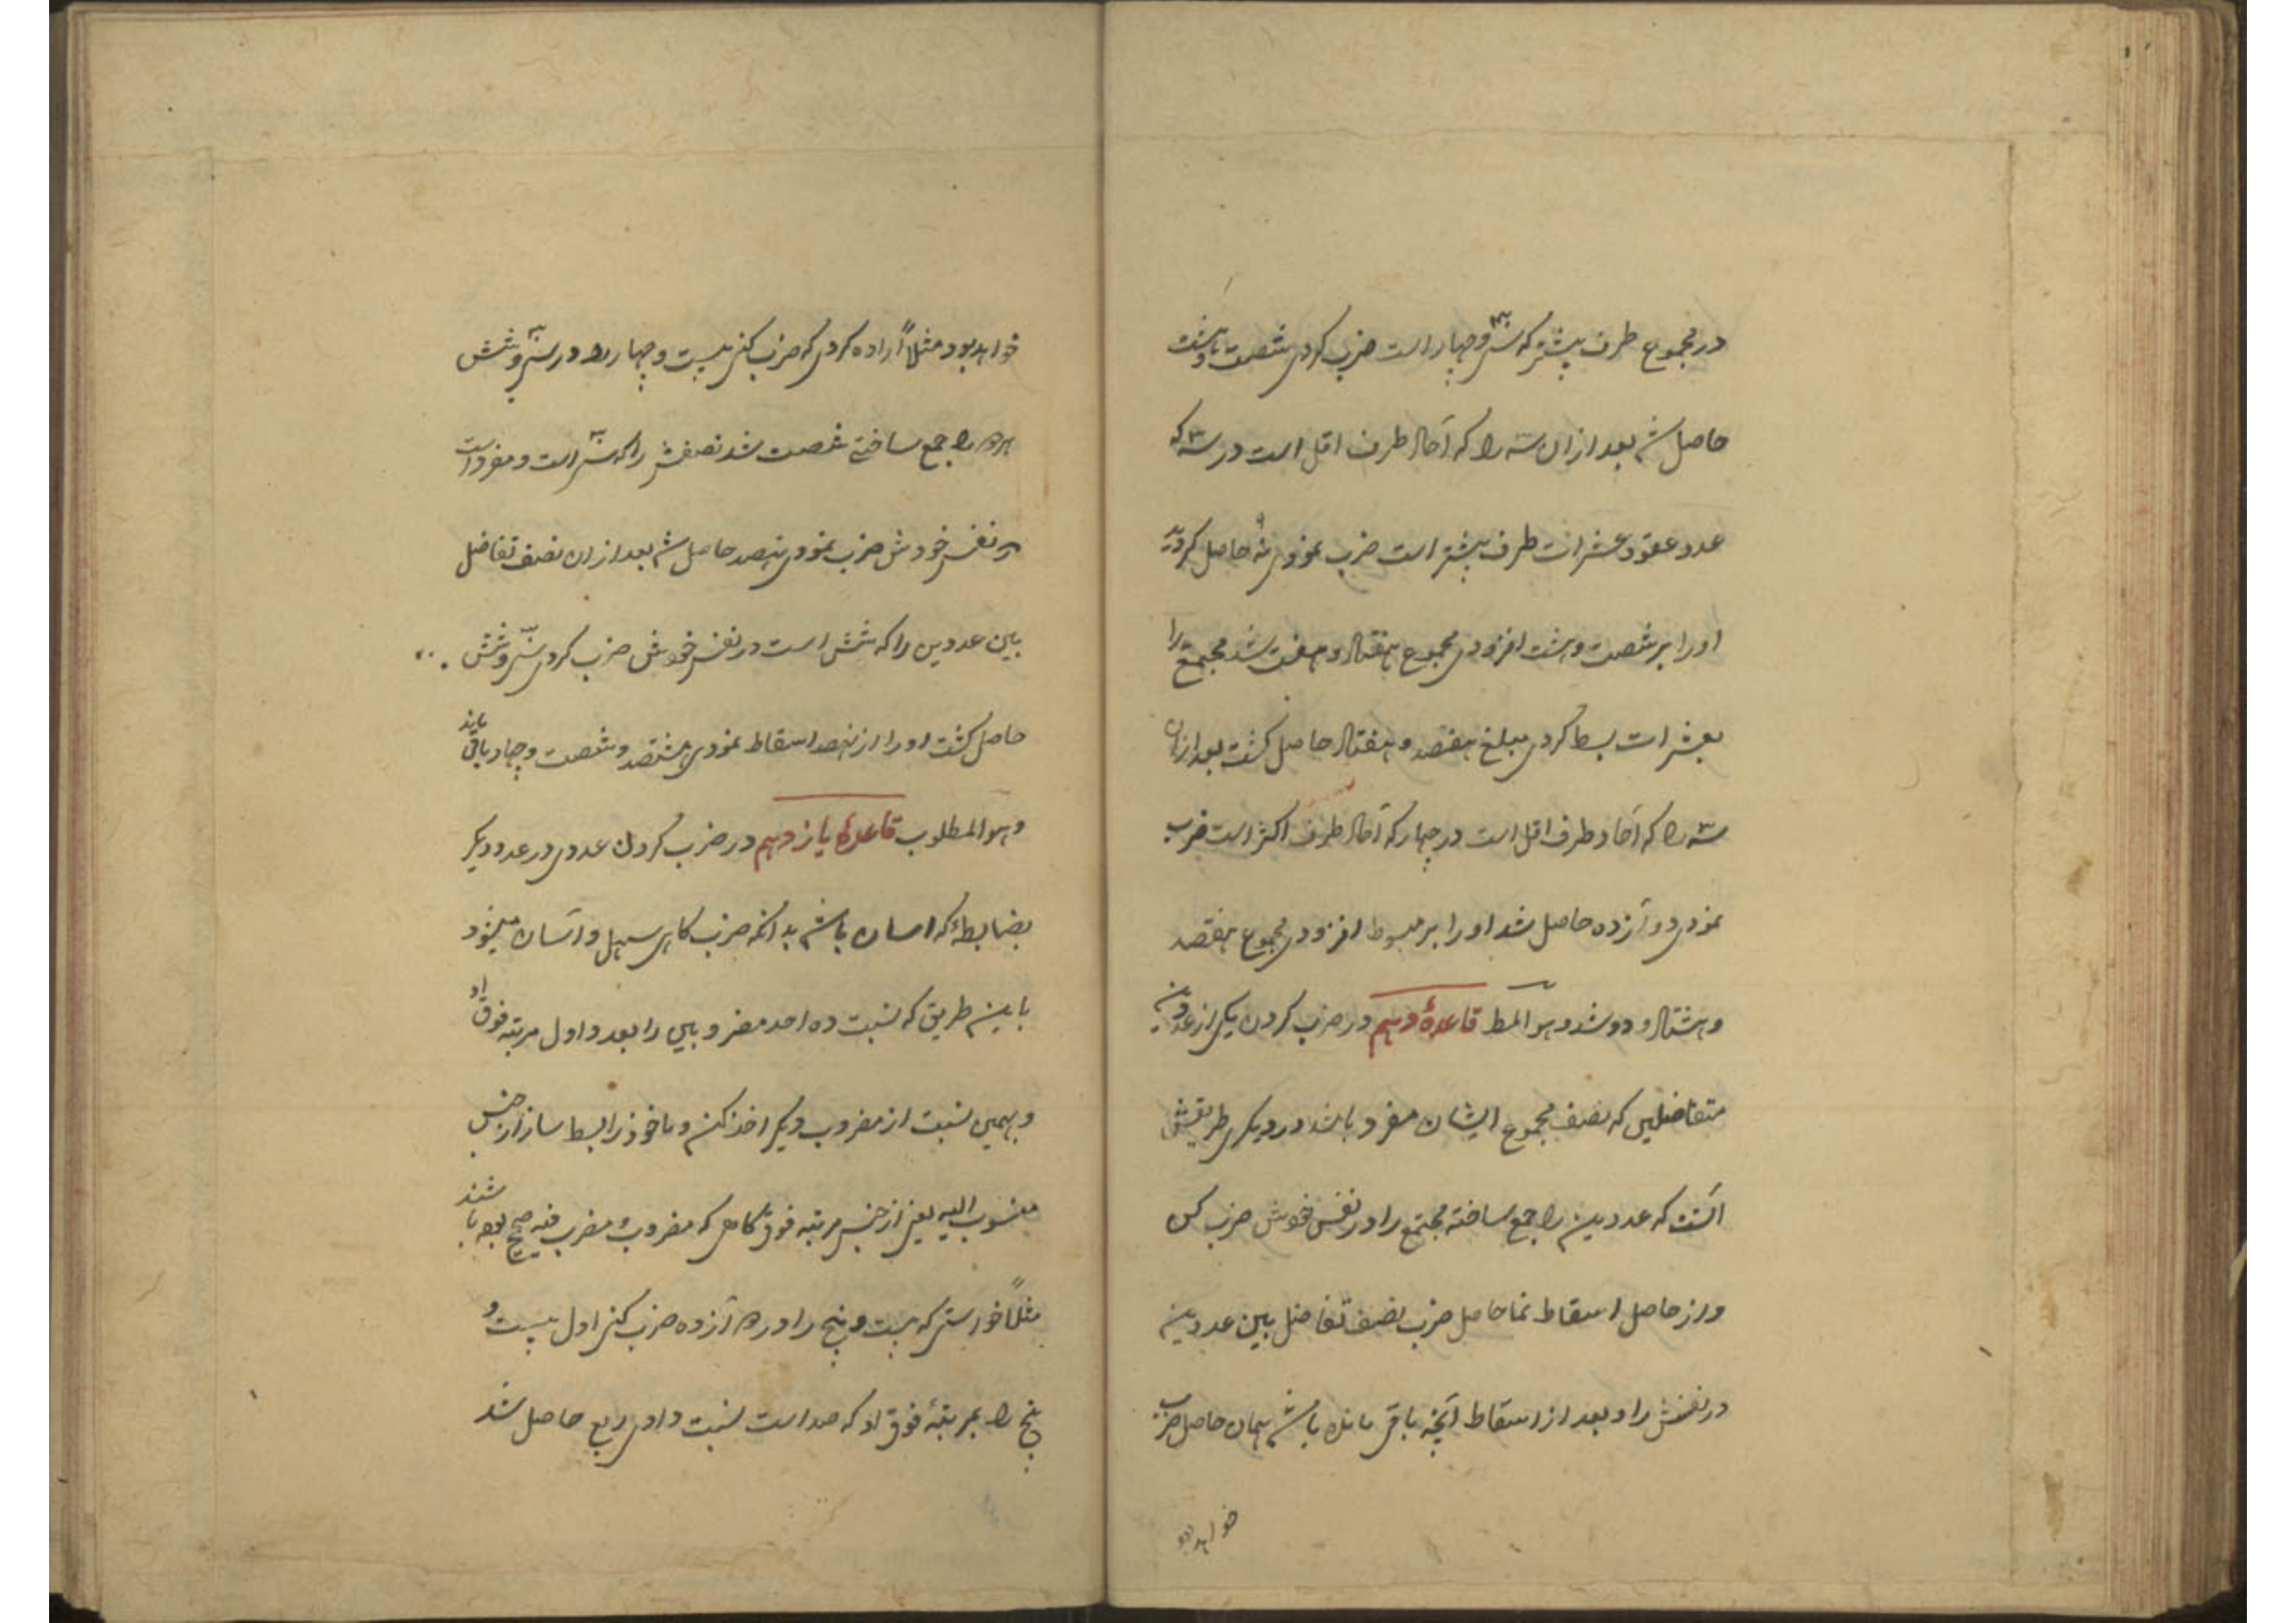 در مجموع طرف بیشتر که سی و چهار است ضرب کردی شصت و هشت
حاصل شد بعد از ان سه را که آحاد طرف اقل است در سه که
عدد عقود عشرات طرف بیشتر است ضرب نمودی نه حاصل کردید
او را بر شصت و هشت افزودی مجموع هفتاد و هفت شد مجتمع را
بعشرات بسط کردی مبلغ هفتصد و هفتاد حاصل کشت بعد ازان
سه را که آحاد طرف اقل است در چهار که آحاد طرف اکثر است ضرب
نمودی دوآزده حاصل شد او را بر مبسوط افزودی مجموع هفتصد
و هشتاد و دو شد و هو المط قاعدهٔ دهم در ضرب کردن یکی از عددین
متفاضلین که نصف مجموع ایشان مفرد باشد در دیکری طریقش
آنست که عددین را جمع ساخته مجتمع را در نفس خوش ضرب کن
و از حاصل اسقاط نما حاصل ضرب نصف تفاضل بین عددین
در نفسش را و بعد از اسقاط آنچه باقی مانده باشد همان حاصل ضرب
خواهد بود
خواهد بود مثلاً اراده کردی که ضرب کنی بیست و چهار را در سی و شش
هردو را جمع ساختی شصت شد نصفش را که سی است و مفرد است
در نفس خودش ضرب نمودی نهصد حاصل شد بعد از ان نصف تفاضل
بین عددین را که شش است در نفس خوش ضرب کردی سی و شش
حاصل کشت او را از نهصد اسقاط نمودی هشتصد و شصت و چهار باقی ماند
و هو المطلوب قاعدهٔ یازدهم در ضرب کردن عددی در عدد دیکر
بضابطهٔ که اسان باشد بدانکه ضرب کاهی سهل و آسان میشود
باین طریق که نسبت ده احد مضروبین را بعدد اول مرتبه فوق او
و بهمین نسبت از مضروب دیکر اخذ کن و ماخوذ را بسط ساز از جنس
منسوب الیه یعنی از جنس مرتبه فوق کاهی که مضروب و مضرب فیه صحیح بوده باشند
مثلاً خواستی که بیست و پنج را در دوآزده ضرب کنی اول بیست و
پنج را بمرتبهٔ فوق او که صد است نسبت دادی ربع حاصل شد